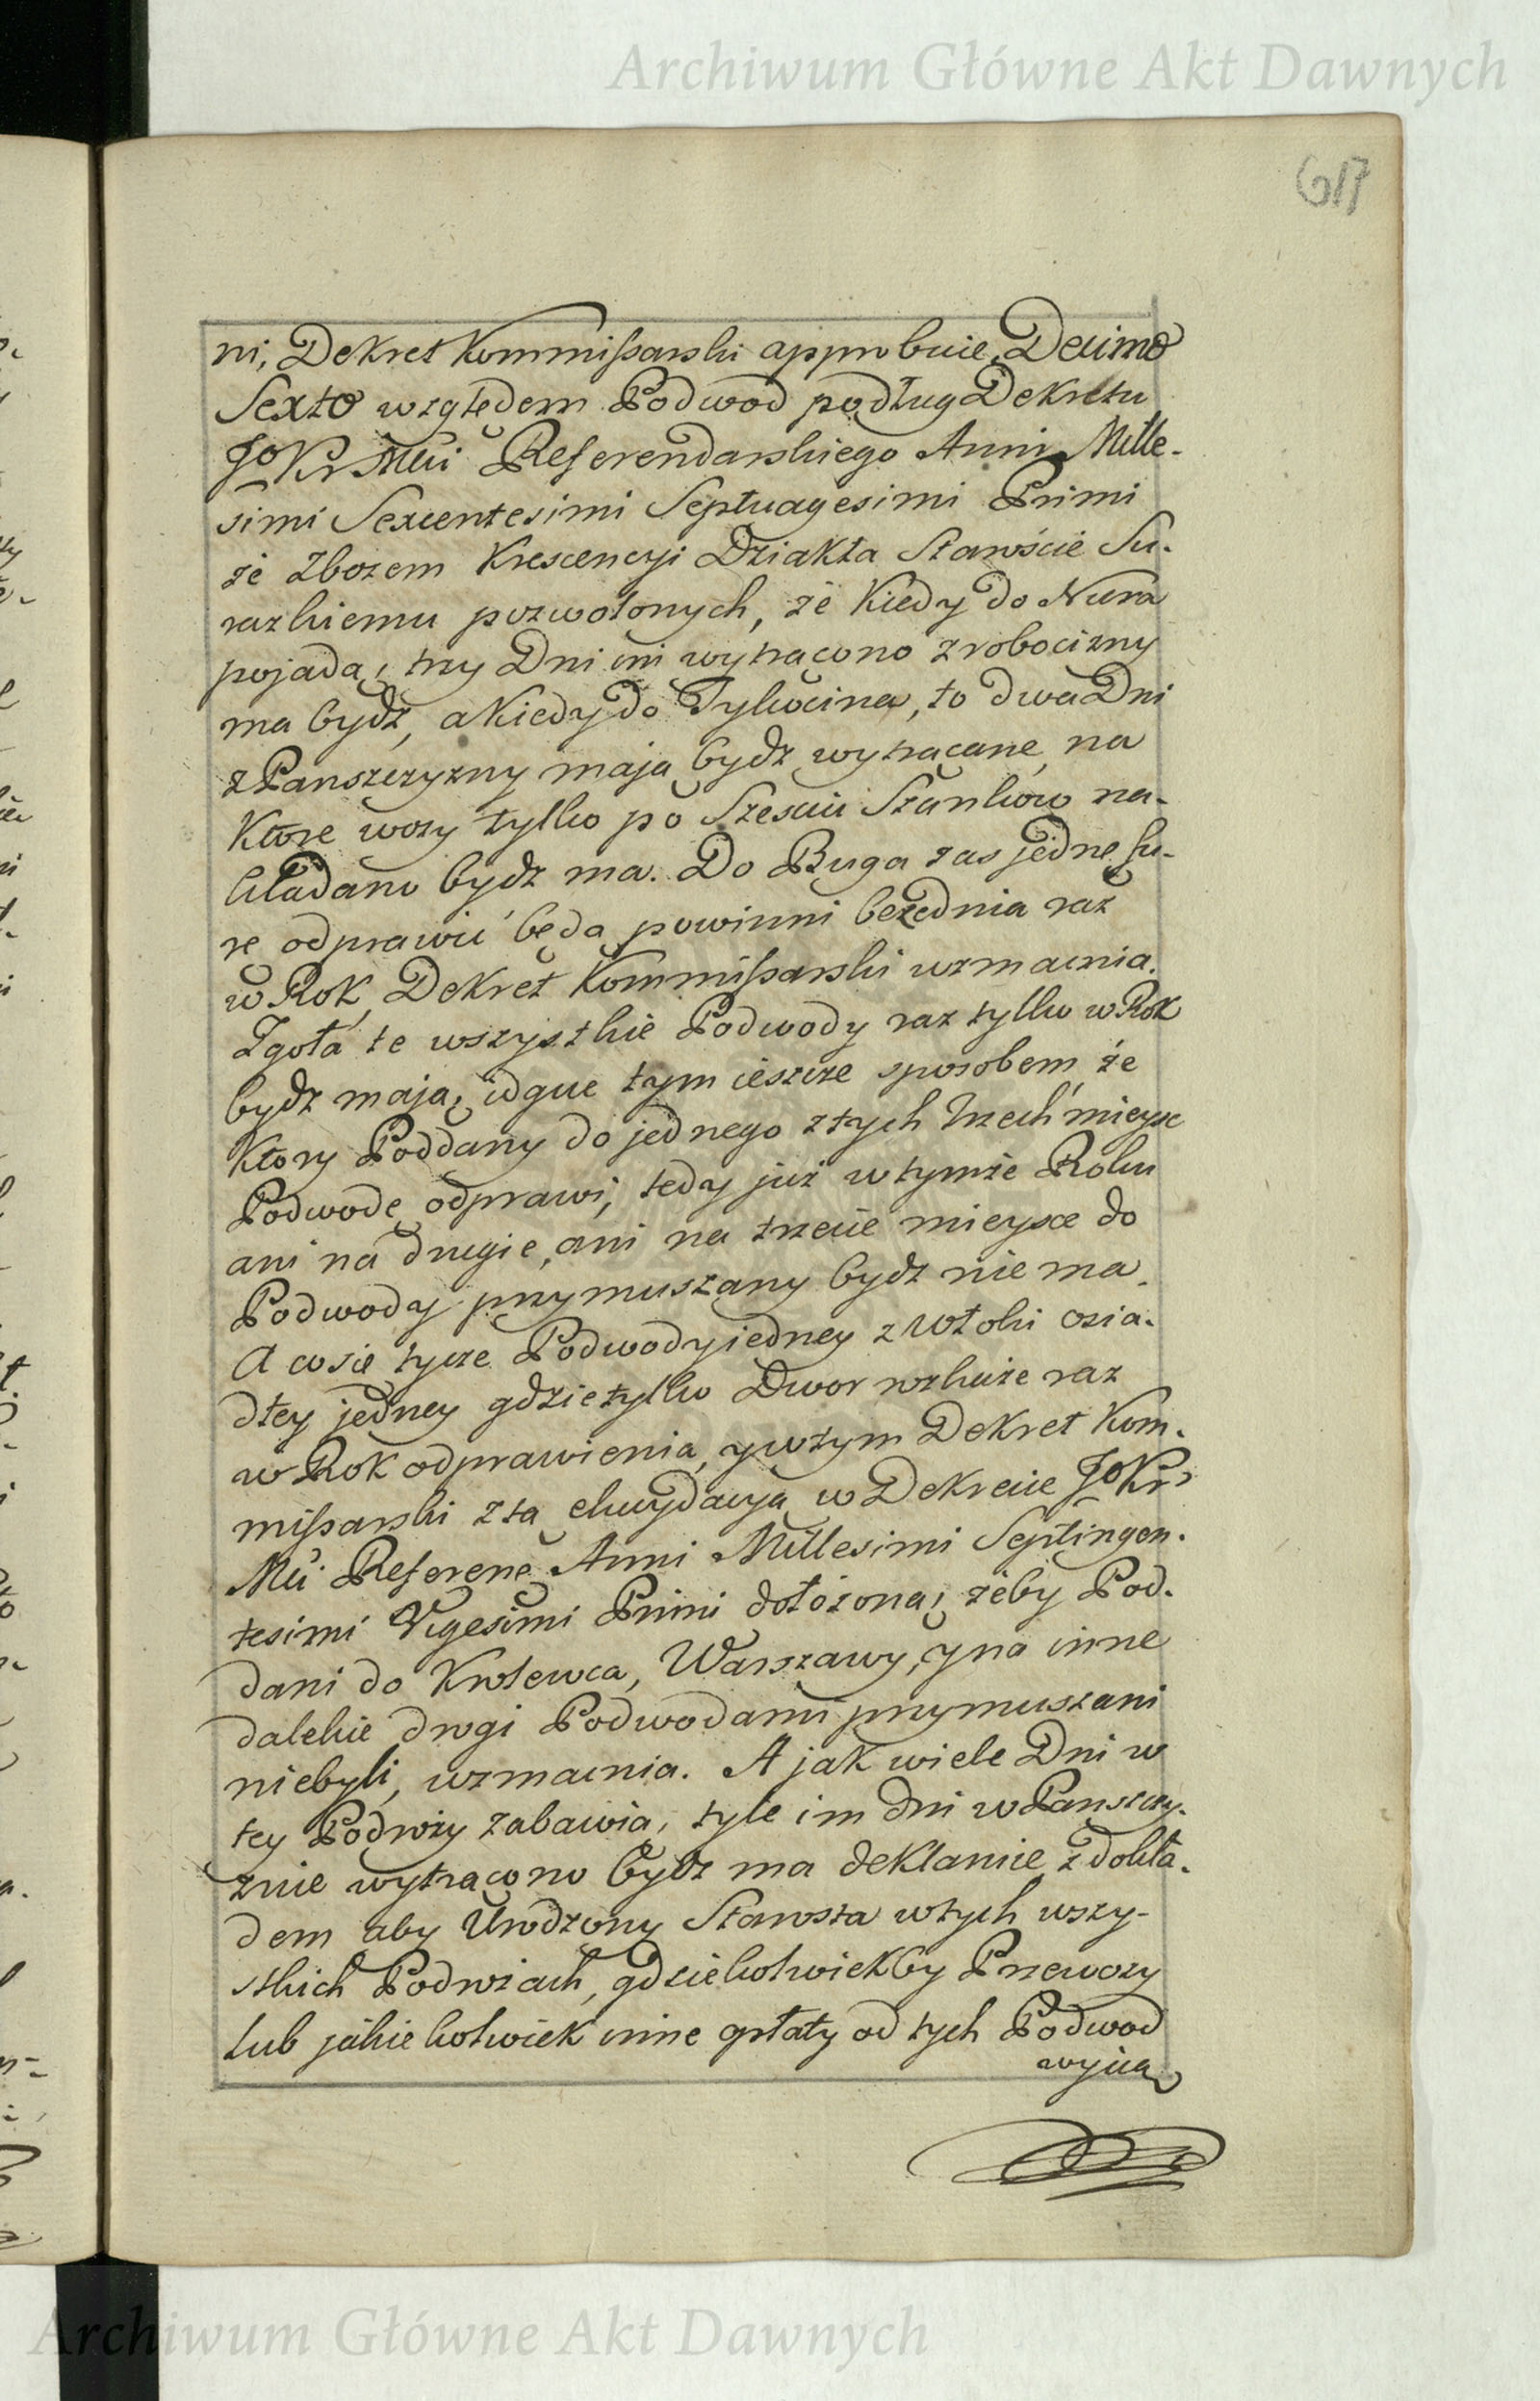 Archiwum Główne Akt Dawnych
617
ni, Dekret Kommissarski approbuie, Decimo
Sexto względem Podwod podług Dekretu
JoKr Mci Referendarskiego Anni Mille-
simi Sexcentesimi Septuagesimi Primi
ze Zbozem Krescencyi Dziakła Staroście Su-
razkiemu pozwolonych, że kiedy do Nura
pojadą, trzy Dni im wytrącono z robocizny
ma bydź, a kiedy do Tykocina, to dwa Dni
z Panszczyzny mają bydz wytrącane, na
Ktore wozy tylko po Szesciu Szankow na-
kładano bydz ma. Do Buga zas jednę fu-
rę odprawić będą powinni bezednia raz
w Rok, Dekret Kommissarski wzmacnia.
Zgoła te wszystkie Podwody raz tylko w Rok
bydz mają, idque tym ieszcze sposobem, że
Ktory Poddany do jednego z tych trzech mieysc
Podwodę odprawi, tedy już w tymże Roku
ani na drugie, ani na trzecie mieysce do
Podwody przymuszany bydz nie ma.
A co się tycze Podwody iedney z Włoki osia-
dłey jedney gdzie tylko Dwor rozkaże raz
w Rok odprawienia, y w tym Dekret Kom-
missarski z tą elucydacyą w Dekrecie JoKr
Mci Referen Anni Millesimi Septingen-
tesimi Vigesimi Primi dołożoną, żeby Pod-
dani do Krolewca, Warszawy, y na inne
dalekie drogi Podwodami przymuszani
niebyli, wzmacnia. A jak wiele Dni w
tey Podroży zabawią, tyle im dni w Panszczy-
znie wytrącono bydz ma deklaruie, z dokła-
dem aby Urodzony Starosta w tych wszy-
stkich Podrożach, gdziekolwiekby Przewozy
lub jakiekolwiek inne opłaty od tych Podwod
wyjią
Archiwum Główne Akt Dawnych